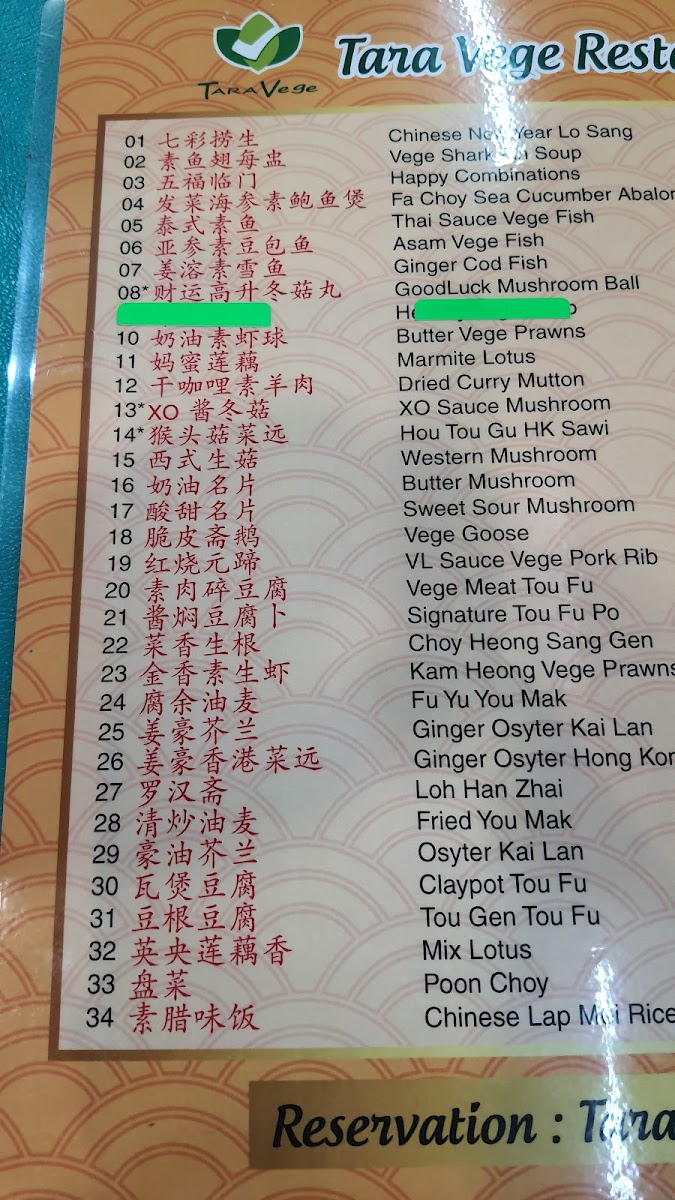 TARA Vege
Tara Vege
01 七彩捞生 Chinese New Year Lo Sang
02 素鱼翅每盅 Vege Shark Soup
03 五福临门 Happy Combinations
04 发菜海参素鲍鱼煲 Fa Choy Sea Cucumber
05 泰式素鱼 Thai Sauce Vege Fish
06 亚参素豆包鱼 Asam Vege Fish
07 姜溶素雪鱼 Ginger Cod Fish
08* 财运高升冬菇丸 GoodLuck Mushroom Ball
10 奶油素虾球 Butter Vege Prawns
11 妈蜜莲藕 Marmite Lotus
12 干咖哩素羊肉 Dried Curry Mutton
13* XO 酱冬菇 XO Sauce Mushroom
14* 猴头菇菜远 Hou Tou Gu HK Sawi
15 西式生菇 Western Mushroom
16 奶油名片 Butter Mushroom
17 酸甜名片 Sweet Sour Mushroom
18 脆皮斋鹅 Vege Goose
19 红烧元蹄 VL Sauce Vege Pork Rib
20 素肉碎豆腐 Vege Meat Tou Fu
21 酱焖豆腐卜 Signature Tou Fu Po
22 菜香生根 Choy Heong Sang Gen
23 金香素生虾 Kam Heong Vege Prawns
24 腐余油麦 Fu Yu You Mak
25 姜豪芥兰 Ginger Osyter Kai Lan
26 姜豪香港菜远 Ginger Osyter Hong
27 罗汉斋 Loh Han Zhai
28 清炒油麦 Fried You Mak
29 豪油芥兰 Osyter Kai Lan
30 瓦煲豆腐 Claypot Tou Fu
31 豆根豆腐 Tou Gen Tou Fu
32 英央莲藕香 Mix Lotus
33 盘菜 Poon Choy
34 素腊味饭 Chinese Lap Mei Rice
Reservation : Tara